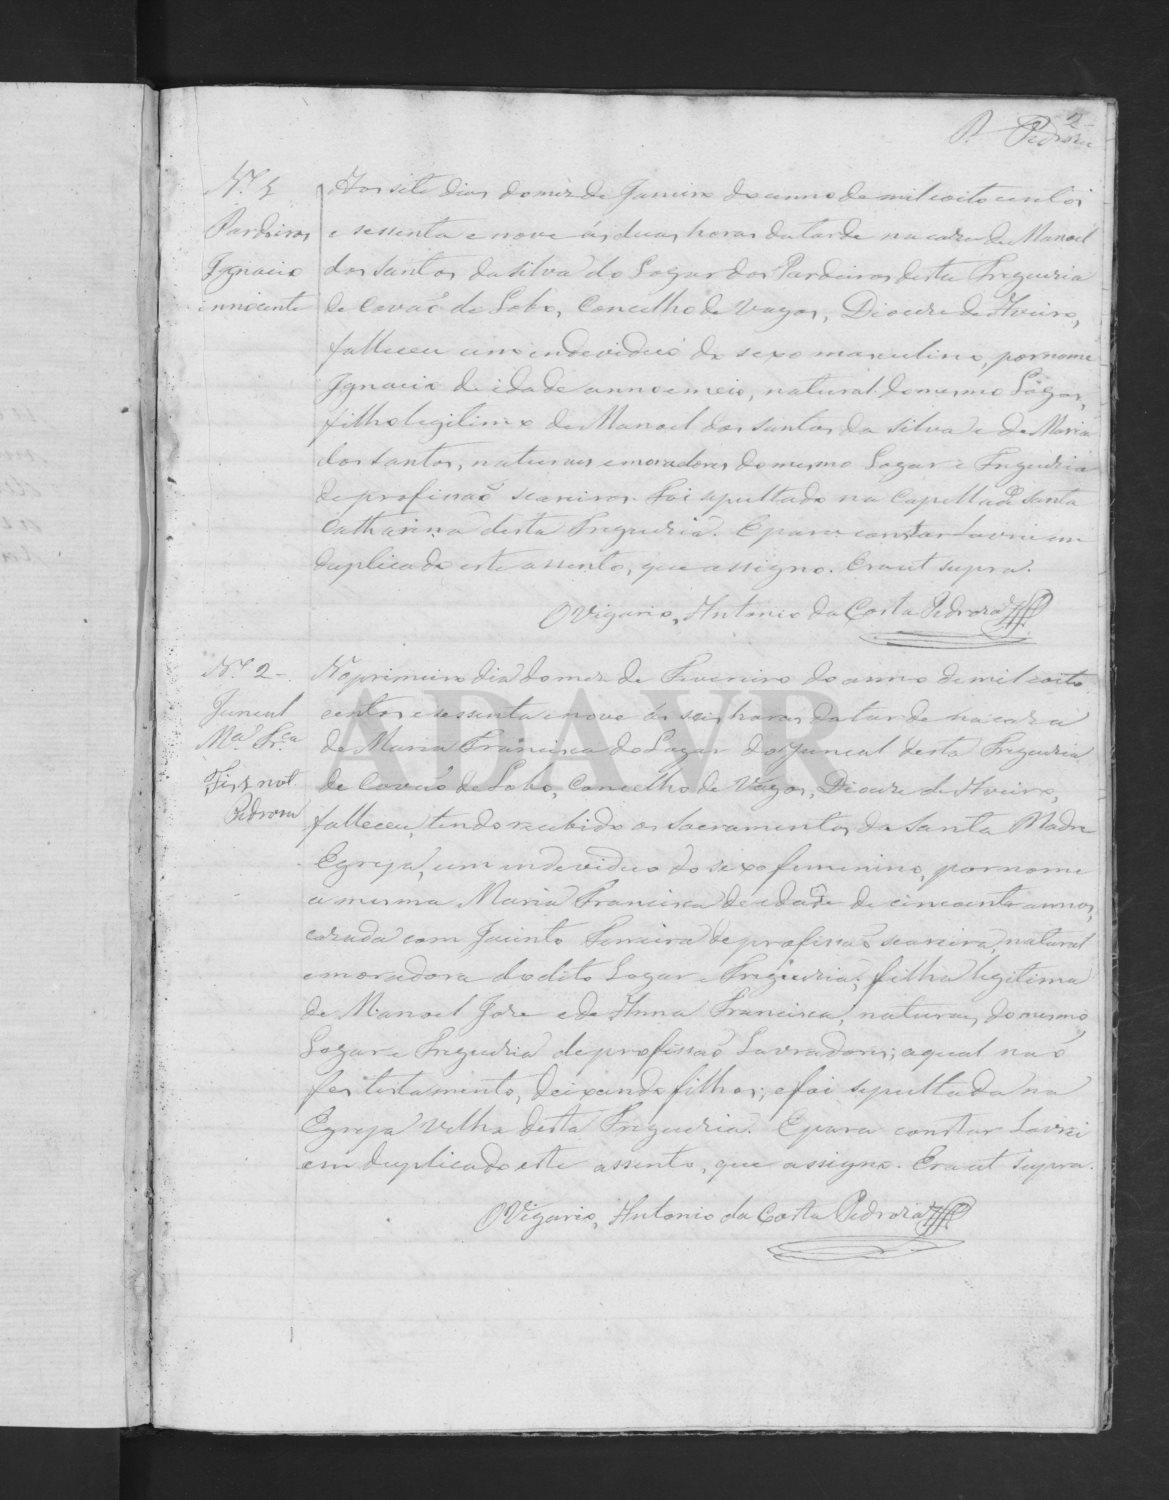 2
P. Pedroza
N.º 1
Pardeiros
Ignacio
innocente
Aos sete dias do mez de Janeiro do anno de mil eoito centos
e sessenta e nove ás duas horas da tarde na caza de Manoel
dos Santos da Silva do Logar dos Pardeiros desta Freguezia
de Covaõ do Lobo, Concelho de Vagos, Diocese de Aveiro,
falleceu um endeviduo do sexo masculino, por nome
Ignacio de idade anno e meio, natural do mesmo Logar,
filho legitimo de Manoel dos Santos da Silva e de Maria
dos Santos, naturaes e moradores do mesmo Logar e Freguezia
de profissaõ seareiros. Foi sepultado na Capella de Santa
Catharina desta Freguezia. E para constar lavrei em
duplicado este assento, que assigno. Era ut supra.
O Vigario, Antonio da Costa Pedroza
N.º 2
Juncal
M.ª Fr.ca
Fiz not.
Pedroza
No primeiro dia do mez de Fevereiro do anno de mil eoito
centos e sessenta e nove ás seis horas da tarde na caza
de Maria Francisca do Logar do Juncal desta Freguezia
de Covaõ do Lobo, Concelho de Vagos, Diocese de Aveiro,
falleceu, tendo recebido os sacramentos da Santa Madre
Egreja, um endeviduo do sexo femenino, por nome
a mesma Maria Francisca de edade de cincoenta annos,
cazada com Jacinto Ferreira de profissaõ seareira, natural
e moradora do dito Logar e Freguezia; filha legitima
de Manoel Joze e de Anna Francisca, naturaes do mesmo
Logar e Freguezia de profissaõ Lavradores; a qual naõ
fez testamento, deixando filhos; e foi sepultada na
Egreja Velha desta Freguezia. E para constar Lavrei
em duplicado este assento, que assigno. Era ut supra.
O Vigario, Antonio da Costa Pedroza
ADAVR